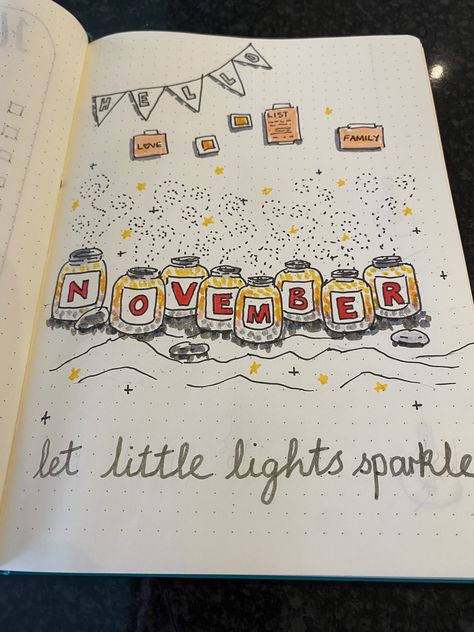 HELLO
LIST
LOVE
FAMILY
NOVEMBER
let little lights sparkle